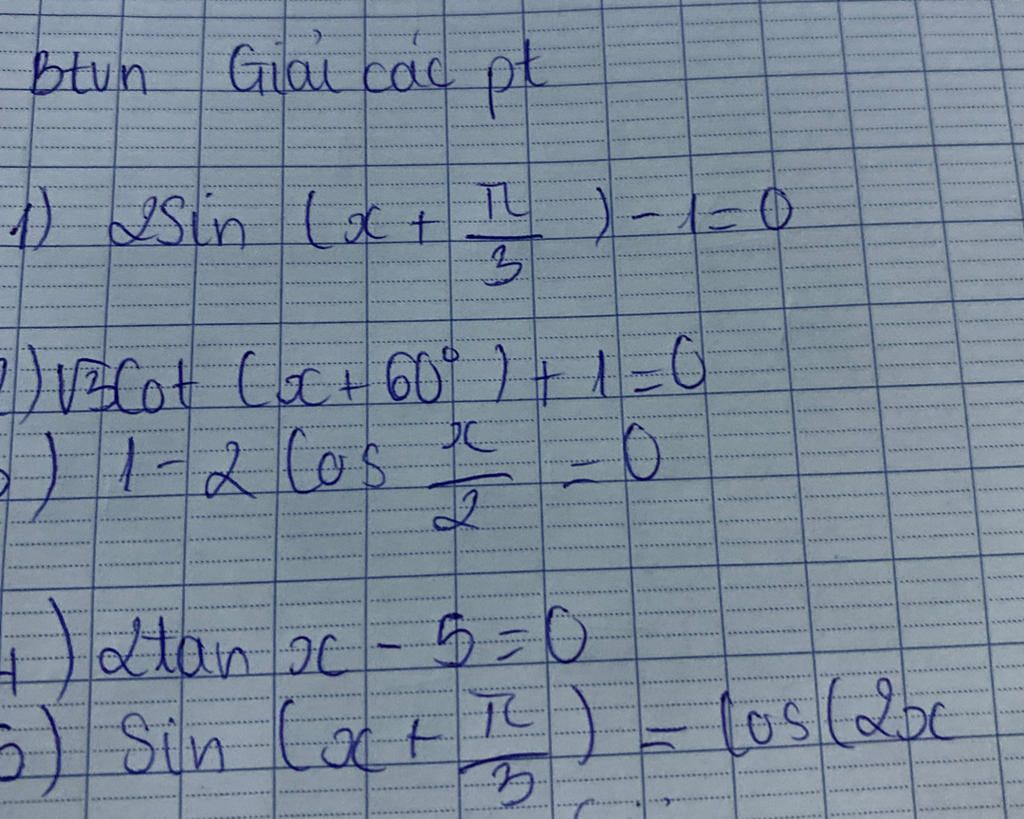 Btvn Giải các pt
1) 2Sin (x + π/3) - 1 = 0
2) √3 Cot (x + 60°) + 1 = 0
3) 1 - 2 Cos x/2 = 0
4) 2tan x - 5 = 0
5) Sin (x + π/3) = Cos(2x